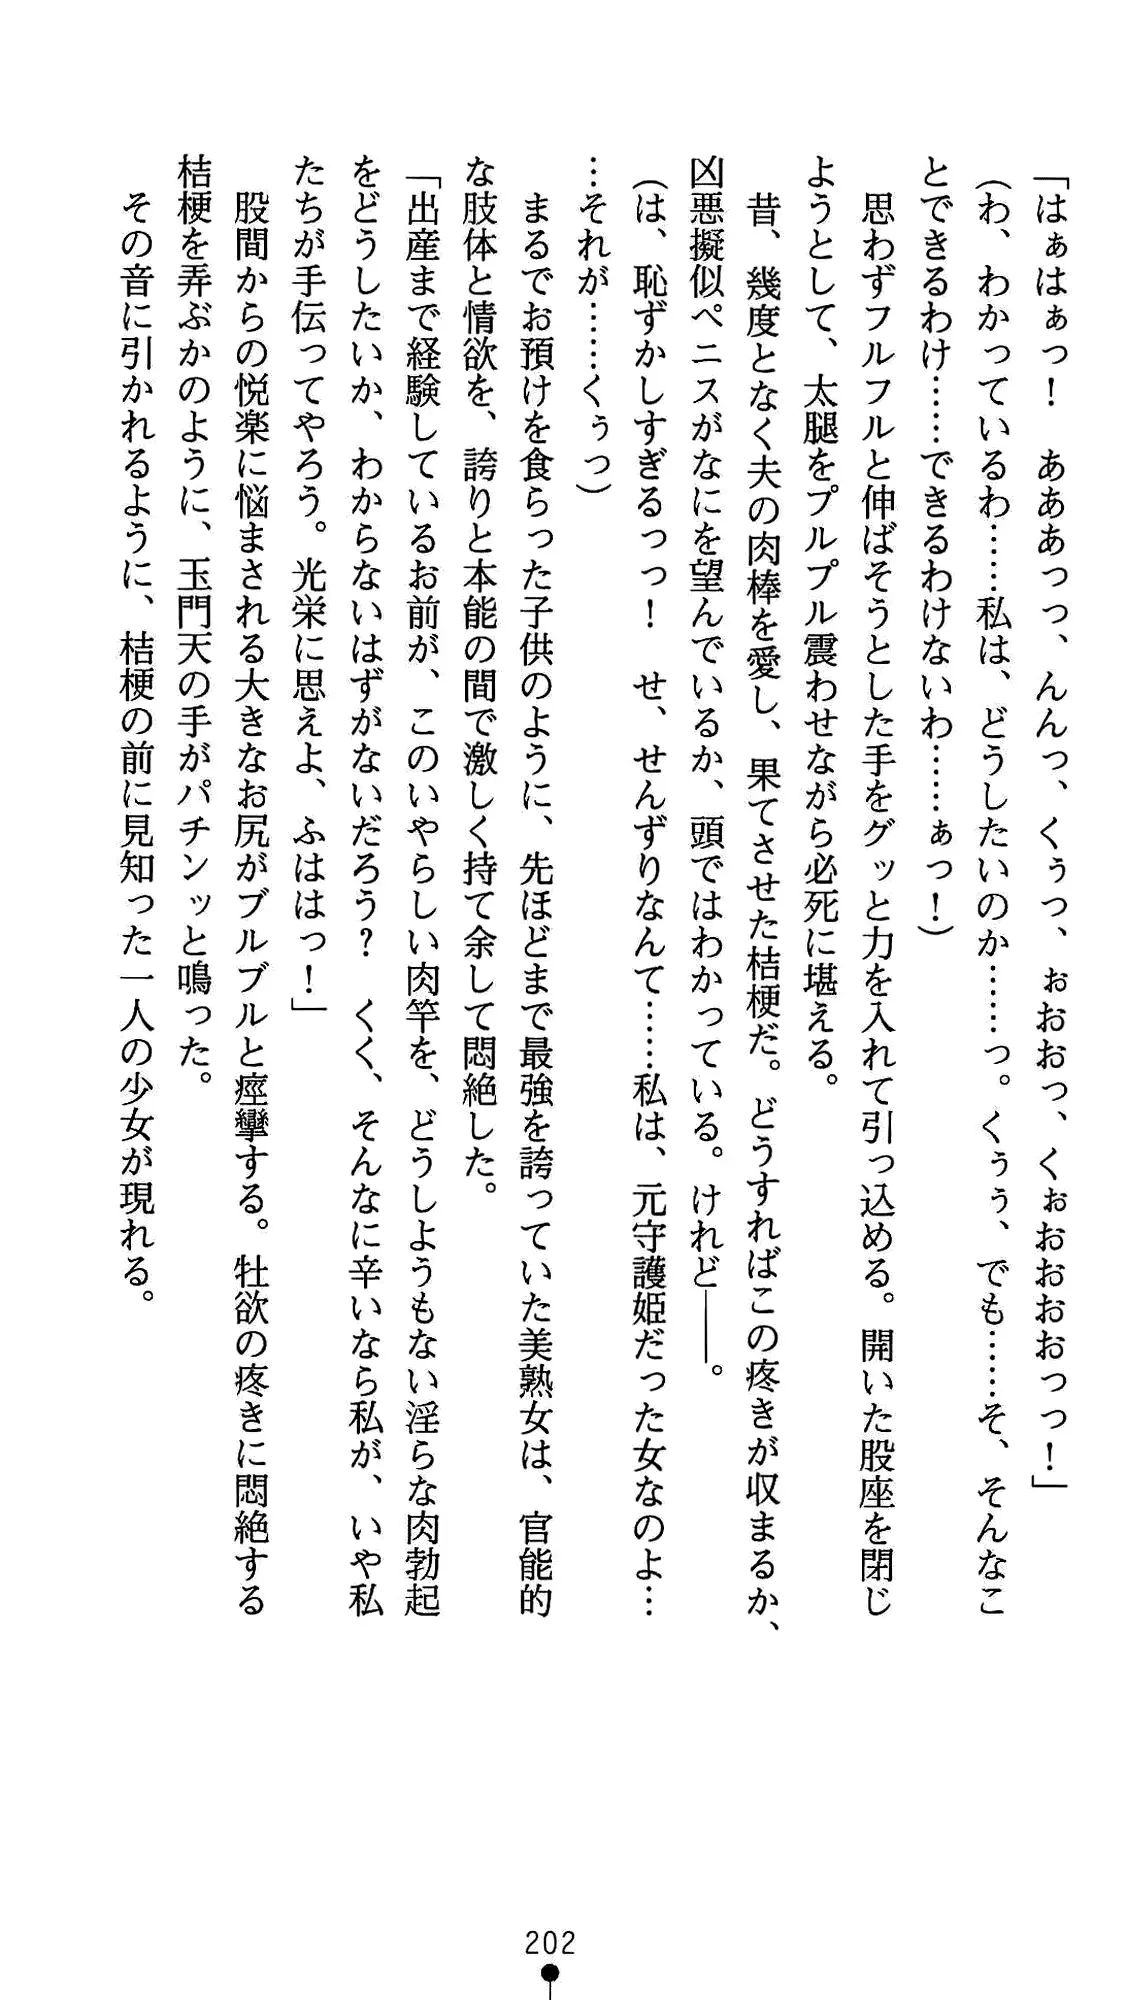 「はぁはぁっ！　あああっっ、んんっ、くぅっ、ぉおおっ、くぉおおおおっっ！」
(わ、わかっているわ……私は、どうしたいのか……っ。くぅぅ、でも……そ、そんなこ
とできるわけ……できるわけないわ……ぁっ！)
　思わずフルフルと伸ばそうとした手をグッと力を入れて引っ込める。開いた股座を閉じ
ようとして、太腿をプルプル震わせながら必死に堪える。
　昔、幾度となく夫の肉棒を愛し、果てさせた桔梗だ。どうすればこの疼きが収まるか、
凶悪擬似ペニスがなにを望んでいるか、頭ではわかっている。けれど――。
(は、恥ずかしすぎるっっ！　せ、せんずりなんて……私は、元守護姫だった女なのよ…
…それが……くぅっ)
　まるでお預けを食らった子供のように、先ほどまで最強を誇っていた美熟女は、官能的
な肢体と情欲を、誇りと本能の間で激しく持て余して悶絶した。
「出産まで経験しているお前が、このいやらしい肉竿を、どうしようもない淫らな肉勃起
をどうしたいか、わからないはずがないだろう？　くく、そんなに辛いなら私が、いや私
たちが手伝ってやろう。光栄に思えよ、ふははっ！」
　股間からの悦楽に悩まされる大きなお尻がブルブルと痙攣する。牡欲の疼きに悶絶する
桔梗を弄ぶかのように、玉門天の手がパチンッと鳴った。
　その音に引かれるように、桔梗の前に見知った一人の少女が現れる。
202